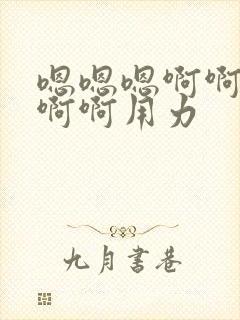 嗯嗯嗯啊啊
啊啊用力
九月书巷